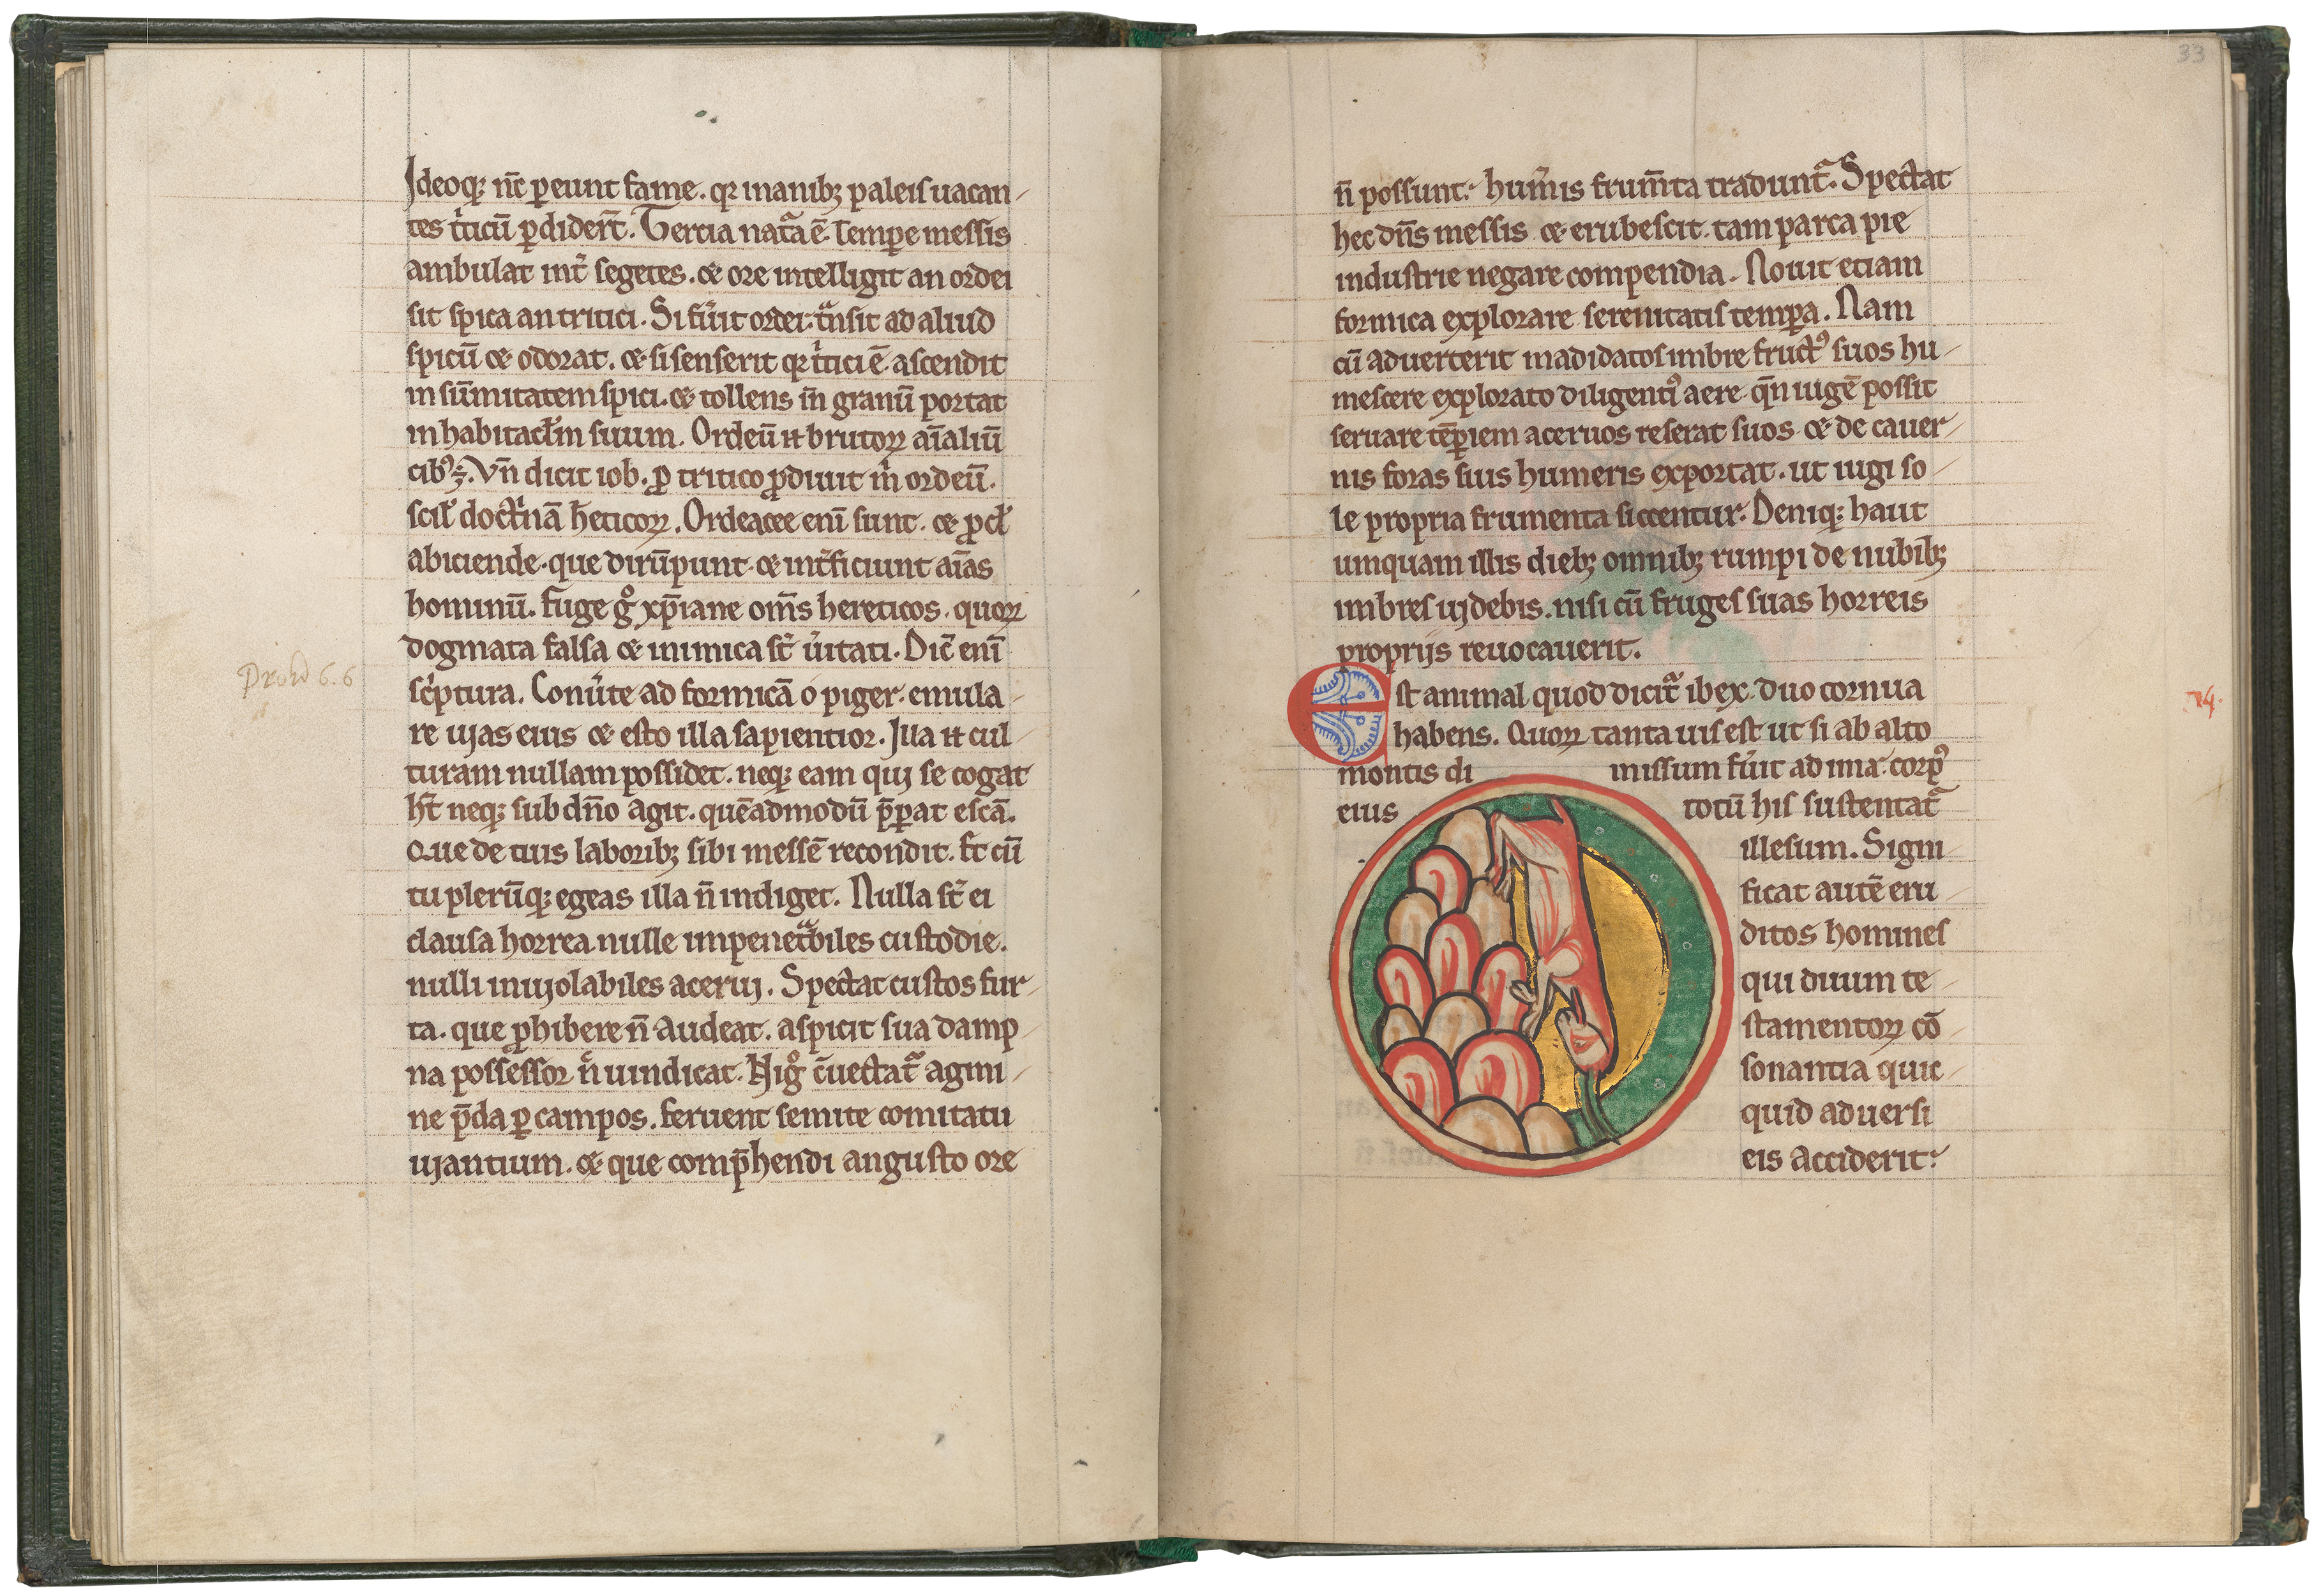 Ideoq; nc̄ ꝑeunt fame. qꝛ inanib; paleis uacan-
tes t͛ticū ꝑdider̄t. Tercia nat᷑a ē. Tempe messis
ambulat int͛ segetes. & ore intelligit an ordei
sit spica an tritici. Si fu͛it ordei. tᷓnsit ad aliud
spicū & odorat. & si senserit qꝛ t͛tici ē. ascendit
in sūmitatem spici. & tollens in̄ granū portat
in habitac̄lm suum. Ordeū n̄ brutoꝝ aīaliū
cib᷒ ÷. Vn̄ dicit iob. ꝓ tritico ꝓdiuit m͛ ordeū.
scil̄ doct͛nā h̄eticoꝝ. Ordeacee eni sunt. & ꝓcl̄
abiciende. que dirūpunt. & int͛ficiunt aīas
hominū. Fuge gͦ xp̄iane om̄s hereticos. quoꝝ
dogmata falsa & inimica st̄ u͛itati. Dic̄ enī
sc͛ptura. Conu͛te ad formicā o piger. emula-
re uias eius & esto illa sapientior. Illa n̄ cul-
turam nullam possidet. neq; eam qui se cogat
ht̄ neq; sub dn̄o agit. quēadmodū p̄ꝑat escā.
Que de tuis laborib; sibi messē recondit. Et cū
tu plerūq; egeas illa n̄ indiget. Nulla st̄ ei
clausa horrea. nulle impenetᷓbiles custodie.
nulli inuiolabiles acerui. Spectat custos fur-
ta. que ꝓhibere n̄ audeat. aspicit sua damp-
na possessor n̄ uindicat. Nigͦ c̄uectat᷑ agmi-
ne p̄da ꝑ campos. feruent semite comitatu
uiantium. & que comp̄hendi angusto ore
Proud 6.6
33
n̄ possunt. hum͛is frum̄ta tradunt᷑. Spectat
hec dn̄s messis & erubescit. tam parca pie
industrie negare compendia. Nouit etiam
formica explorare serenitatis tempꝑa. Nam
cū aduerterit madidatos imbre fruct᷒ suos hu-
mescere explorato diligent᷒ aere. qn̄ iugē possit
seruare tēꝑiem aceruos reserat suos & de cauer-
nis foras suis humeris exportat. ut iugi so-
le propria frumenta siccentur. Deniq; haut
umquam illis dieb; omnib; rumpi de nubib;
imbres uidebis. nisi cū fruges suas horreis
proprijs reuocauerit.
Est animal quod dicit᷑ ibex. duo cornua
habens. Quoꝝ tanta uis est ut si ab alto
montis di missum fu͛it ad ima. corp᷒
eius totū his sustentat᷑
illesum. Signi-
ficat autē eru-
ditos homines
qui duum te-
stamentoꝝ cō-
sonantia quic-
quid aduersi
eis acciderit.